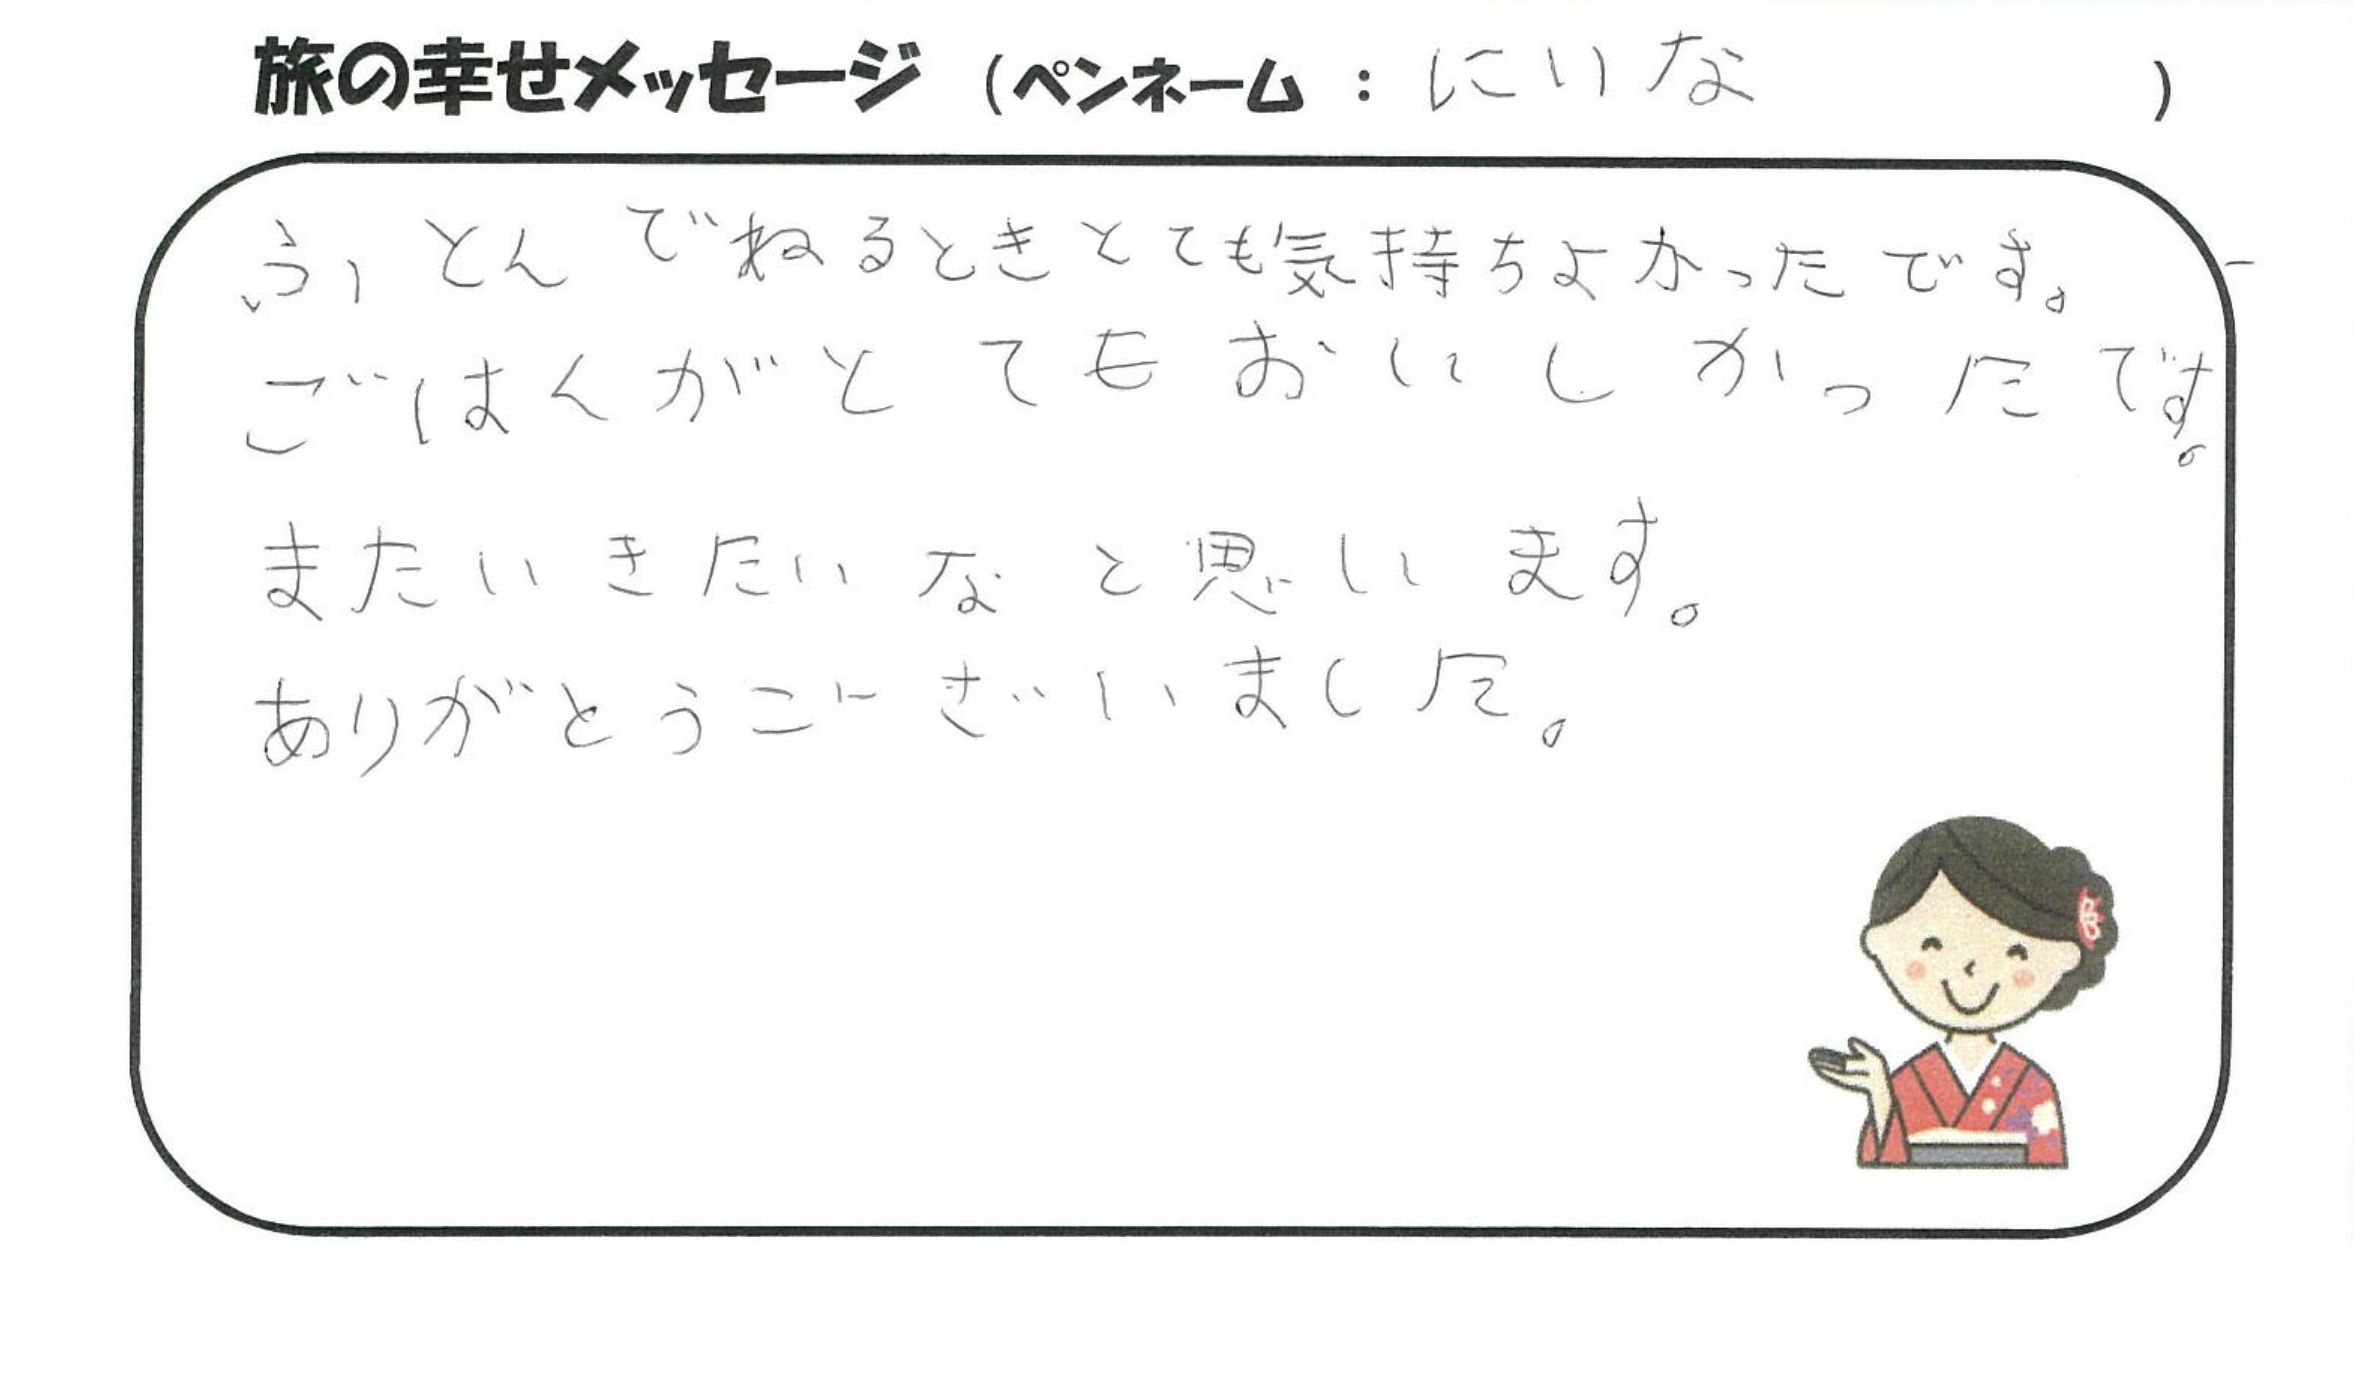 旅の幸せメッセージ（ペンネーム：にいな）
ふとんでねるときとても気持ちよかったです。
ごはんがとてもおいしかったです。
またいきたいなと思います。
ありがとうございました。